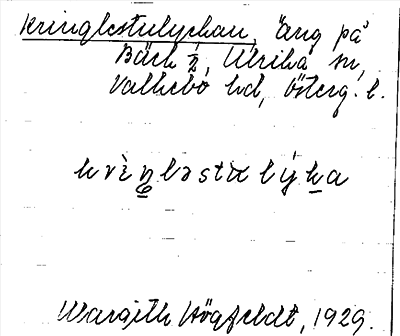 Kringlestulyckan, äng på
Bäck ½, Ulrika sn,
Valkebo hd, Österg. l.
Margith Högfeldt, 1929.